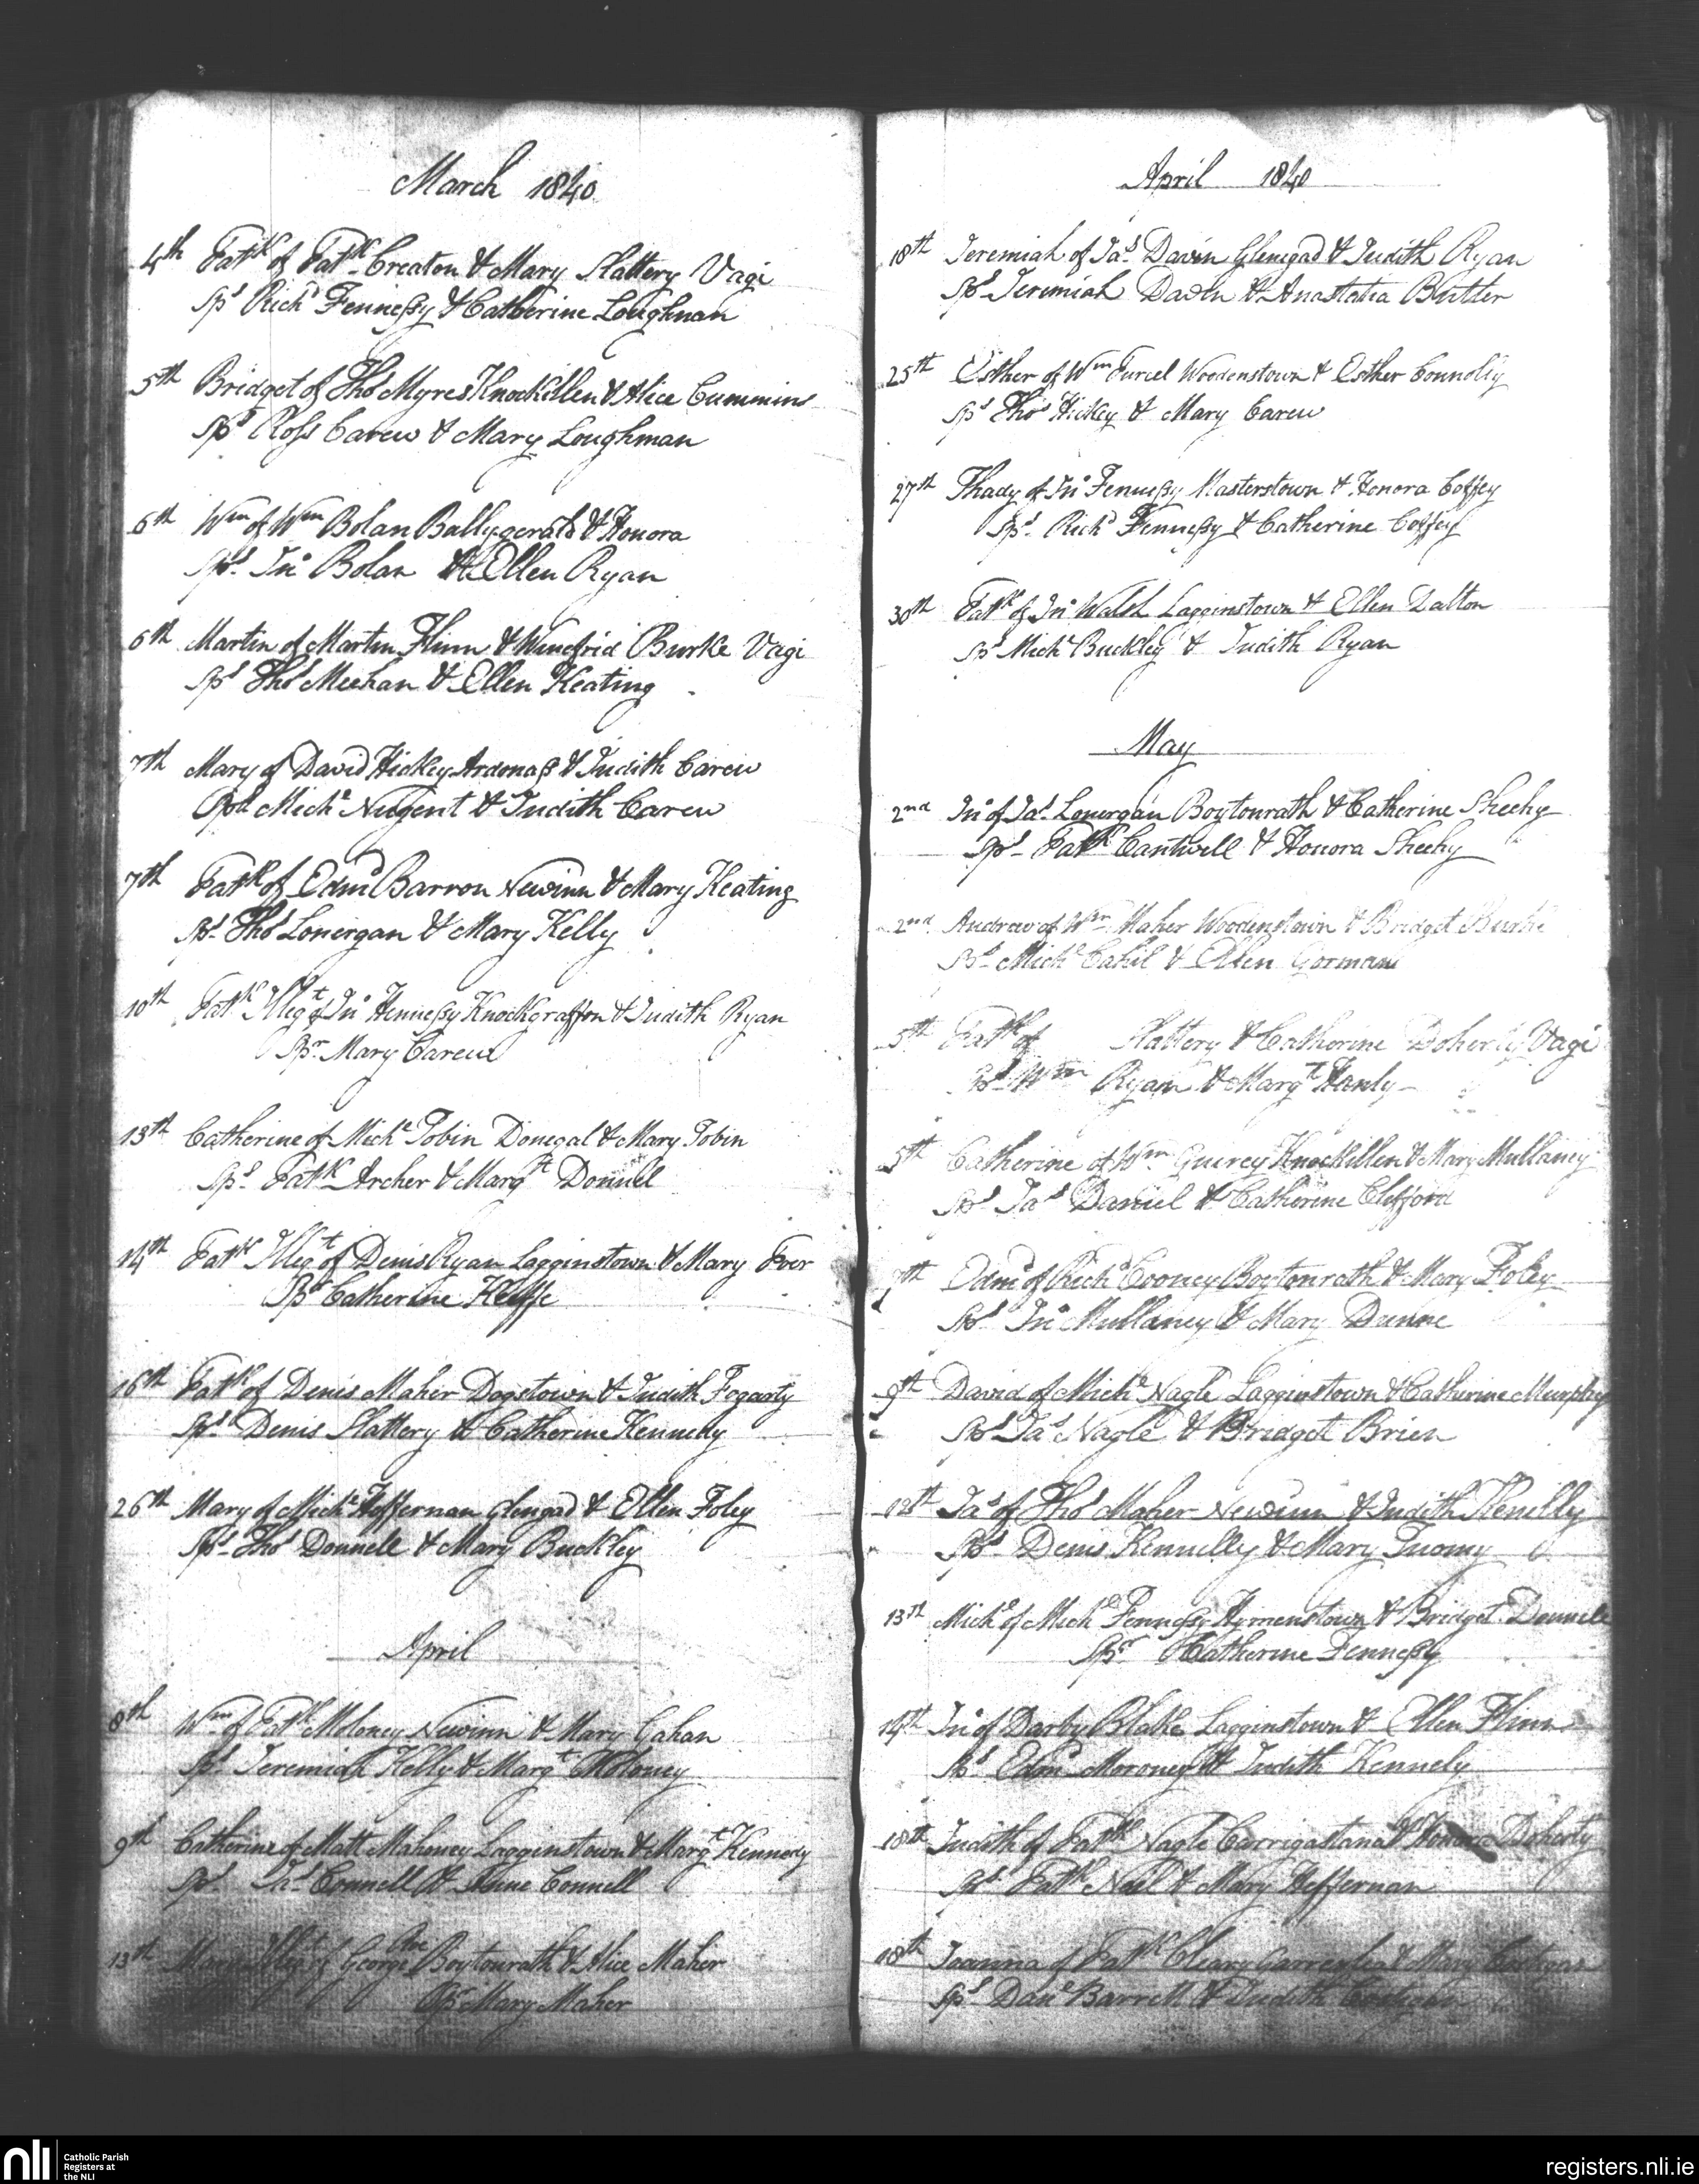 March 1840
4th Patk of Patk Creaton & Mary Slattery Vagi
Sps Richd Fennessy & Catherine Loughnan
5th Bridget of Thos Myres Knockillen & Alice Cummins
Sps Ross Carew & Mary Loughman
6th Wm of Wm Bolan Ballygerald & Honora
Sps Jno Bolan & Ellen Ryan
6th Martin of Martin Flinn & Winefrid Burke Vagi
Sps Thos Meehan & Ellen Keating
7th Mary of David Hickey Ardmass & Judith Carew
Michl Nugent & Judith Carew
7th Patk of Edmd Barron Newinn & Mary Keating
Sps Thos Lonergan & Mary Kelly
10th Patk Illegt of Jno Hennessy Knockgraffon & Judith Ryan
Spr Mary Carew
13th Catherine of Michl Tobin Donegal & Mary Tobin
Sps Patk Archer & Margt Donnell
14th Patk Illegt of Denis Ryan Lagginstown & Mary
Spr Catherine Keeffe
16th Patk of Denis Maher Dogstown & Judith Fogarty
Sps Denis Slattery & Catherine Kennedy
26th Mary of Michl Heffernan Glengad & Ellen Foley
Sps Thos Donnell & Mary Buckley
April
8th Wm of Patk Moloney Newinn & Mary Gahan
Sps Jeremiah Kelly & Margt Moloney
9th Catherine of Matt Mahoney Lagginstown & Margt Kennedy
Sps Connell & Connell
13th Mary Illegt of George Boytonrath & Alice Maher
Spr Mary Maher
April 1840
18th Jeremiah of Jas Davin Glenegad & Judith Ryan
Sps Jeremiah Davin & Anastatia Butler
25th Esther of Wm Purcel Woodenstown & Esther Connolly
Sps Thos Hickey & Mary Carew
27th Thady of Jno Fennessy Masterstown & Honora Coffey
Sps Richd Fennessy & Catherine Coffey
30th Patk of Jno Walsh Lagginstown & Ellen Dalton
Sps Michl Buckley & Judith Ryan
May
2nd Jno of Jas Lonergan Boytonrath & Catherine Sheehy
Sps Patk Cantwell & Honora Sheehy
2nd Andrew of Wm Maher Woodenstown & Bridget Burke
Sps Michl Cahil & Ellen Gorman
5th Patk of Slattery & Catherine Doherty Vagi
Sps Wm Ryan & Margt Hanly
5th Catherine of Wm Guerey Knockillen & Mary Mullaney
Sps Jas Daniel & Catherine Clifford
7th Edmd of Richd Cooney Boytonrath & Mary Foley
Sps Jno Mullaney & Mary Dunne
9th David of Michl Nagle Lagginstown & Catherine Murphy
Sps Jas Nagle & Bridget Brien
12th Jas of Thos Maher Newinn & Judith Kenelly
Sps Denis Kennelly & Mary Tuomy
13th Michl of Michl Fennessy Hymenstown & Bridget Donnell
Spr Catherine Fennessy
14th Jno of Darby Blake Lagginstown & Ellen Flinn
Sps Edmd Moroney & Judith Kennely
18th Judith of Patk Nagle Carrigastana & Honora Doherty
Sps Patk Neil & Mary Heffernan
18th Joanna of Patk Cleary & Mary Costigan
Sps Danl Barrett & Judith
nli
Catholic Parish
Registers at
the NLI
registers.nli.ie